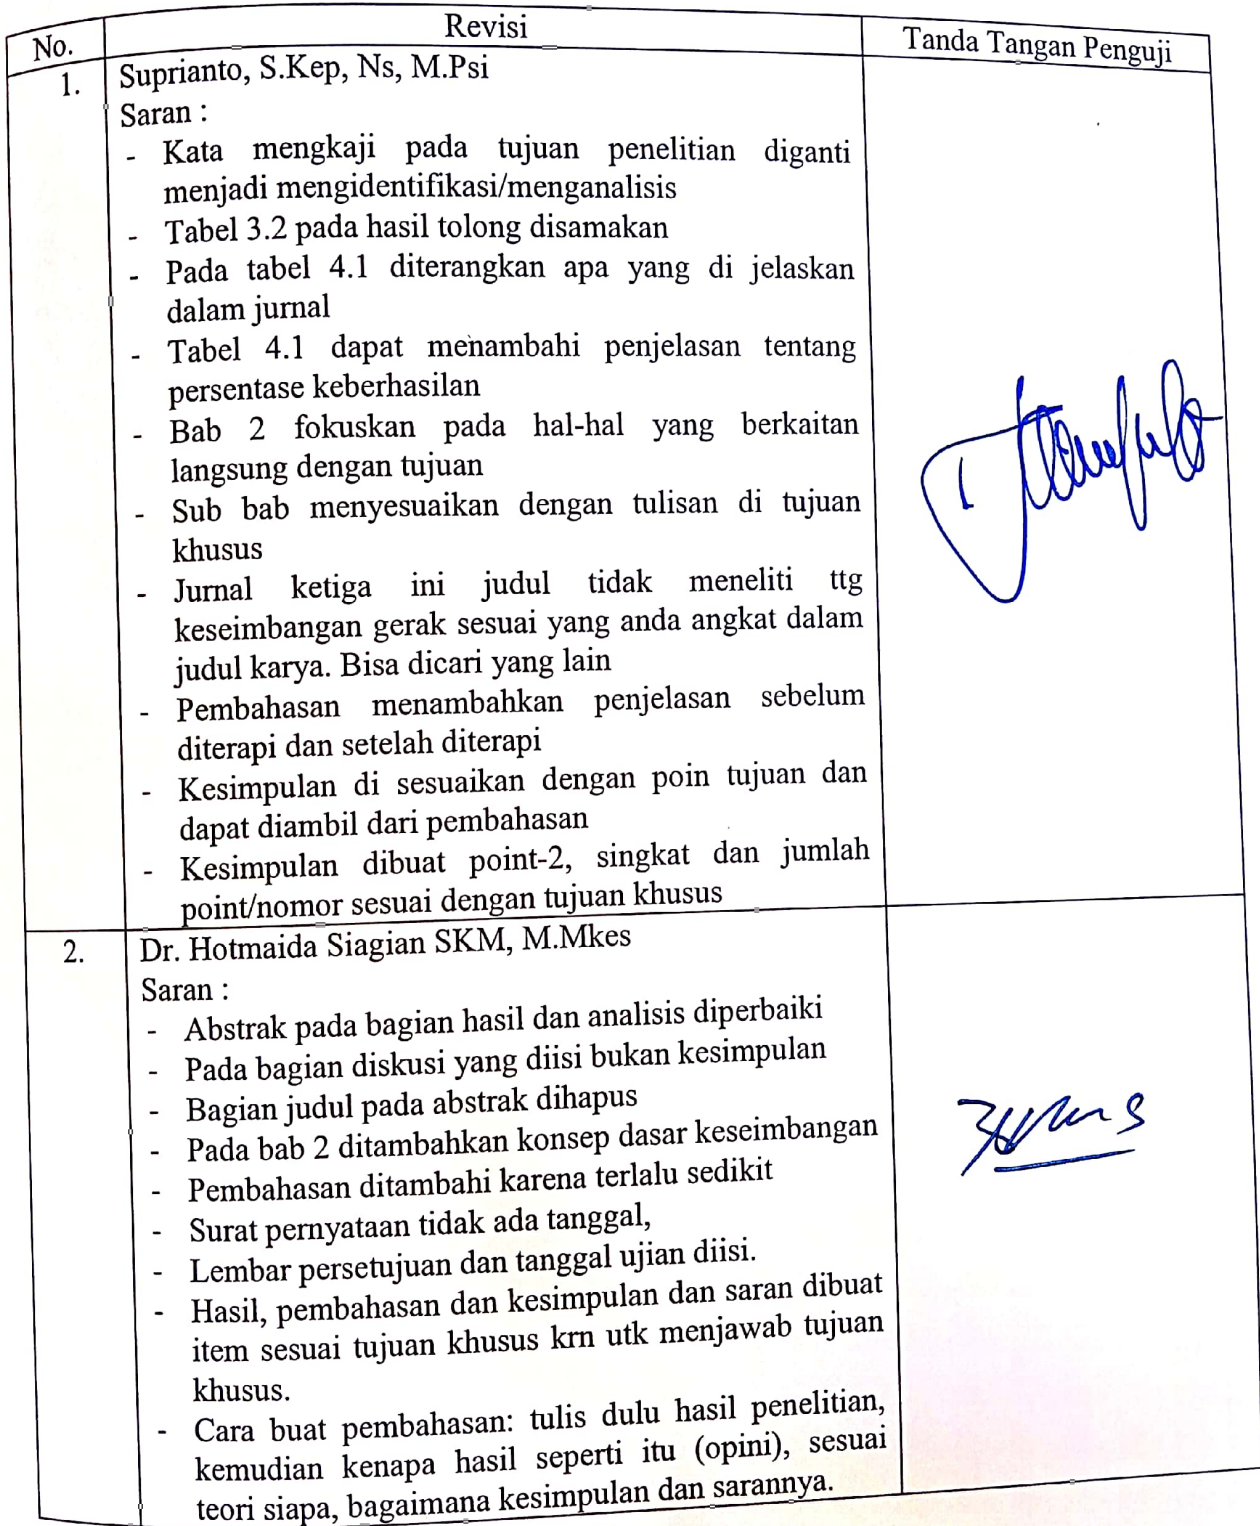 No.
Revisi
Tanda Tangan Penguji
1.
Suprianto, S.Kep, Ns, M.Psi
Saran :
- Kata mengkaji pada tujuan penelitian diganti
menjadi mengidentifikasi/menganalisis
- Tabel 3.2 pada hasil tolong disamakan
- Pada tabel 4.1 diterangkan apa yang di jelaskan
dalam jurnal
- Tabel 4.1 dapat menambahi penjelasan tentang
persentase keberhasilan
- Bab 2 fokuskan pada hal-hal yang berkaitan
langsung dengan tujuan
- Sub bab menyesuaikan dengan tulisan di tujuan
khusus
- Jurnal ketiga ini judul tidak meneliti ttg
keseimbangan gerak sesuai yang anda angkat dalam
judul karya. Bisa dicari yang lain
- Pembahasan menambahkan penjelasan sebelum
diterapi dan setelah diterapi
- Kesimpulan di sesuaikan dengan poin tujuan dan
dapat diambil dari pembahasan
- Kesimpulan dibuat point-2, singkat dan jumlah
point/nomor sesuai dengan tujuan khusus
2.
Dr. Hotmaida Siagian SKM, M.Mkes
Saran :
- Abstrak pada bagian hasil dan analisis diperbaiki
- Pada bagian diskusi yang diisi bukan kesimpulan
- Bagian judul pada abstrak dihapus
- Pada bab 2 ditambahkan konsep dasar keseimbangan
- Pembahasan ditambahi karena terlalu sedikit
- Surat pernyataan tidak ada tanggal,
- Lembar persetujuan dan tanggal ujian diisi.
- Hasil, pembahasan dan kesimpulan dan saran dibuat
item sesuai tujuan khusus krn utk menjawab tujuan
khusus.
- Cara buat pembahasan: tulis dulu hasil penelitian,
kemudian kenapa hasil seperti itu (opini), sesuai
teori siapa, bagaimana kesimpulan dan sarannya.